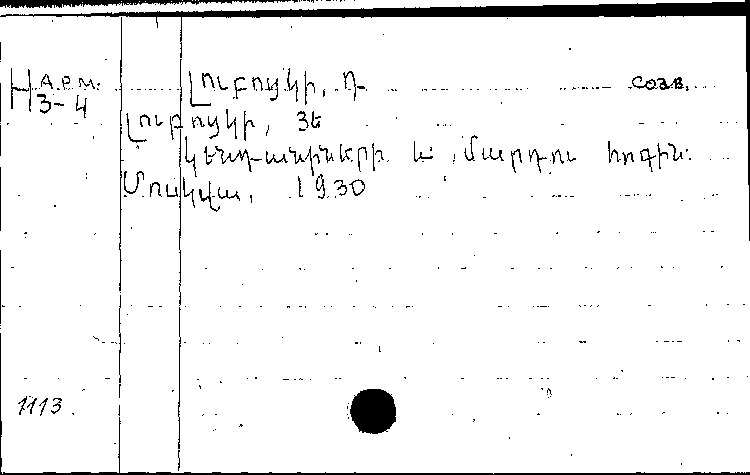 Н Арм. 3-4
Լուբոցկի, Դ. созв.
Լուբոցկի, Յե
Կենդանիների և մարդու հոգին.
Մոսկվա, 1930
1113.